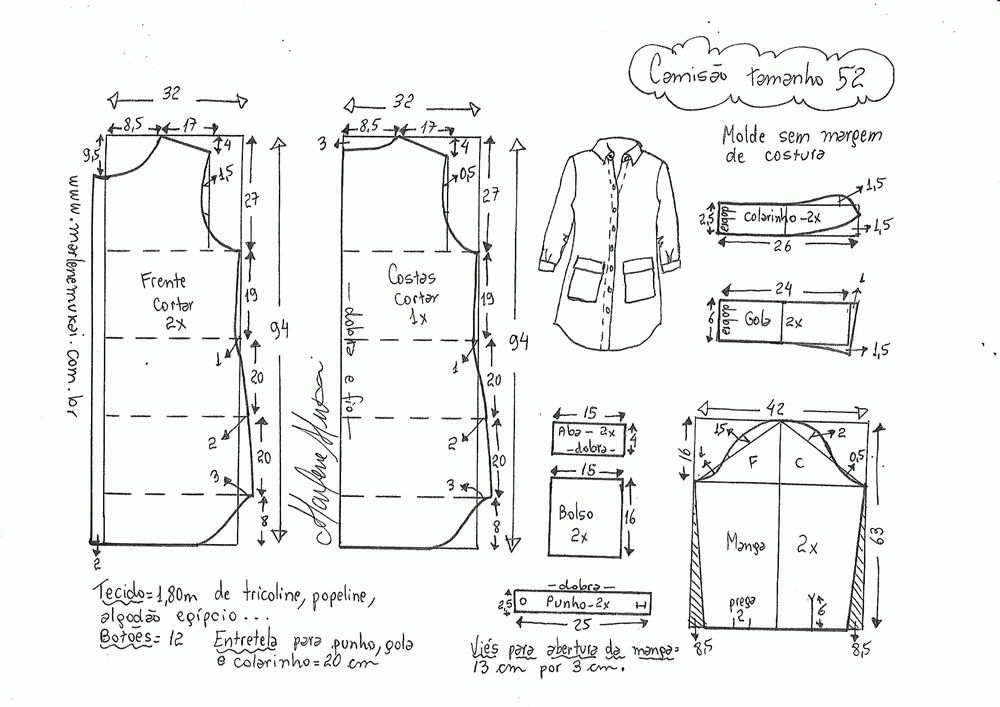 Camisão tamanho 52
Molde sem margem
de costura
32
8,5 17
9,5
4
1,5
27
19
1
20
2
20
3
8
94
2
Frente
Cortar
2x
www.marlenemukai.com.br
32
8,5 17
3
4
0,5
27
19
1
20
2
20
3
8
94
Costas
Cortar
1x
dobra e fio
Marlene Mukai
1,5
2,5
dobra
Colarinho-2x
1,5
26
24
1
6
dobra
Gola 2x
1,5
15
Aba - 2x
-dobra-
4
15
Bolso
2x
16
-dobra-
2,5
Punho-2x
25
42
16
1,5
2
1
F C
0,5
63
Manga 2x
prega
2
6
8,5 8,5
Tecido= 1,80m de tricoline, popeline,
algodão egípcio...
Botões= 12 Entretela para punho, gola
e colarinho=20 cm
Viés para abertura da manga=
13 cm por 3 cm.